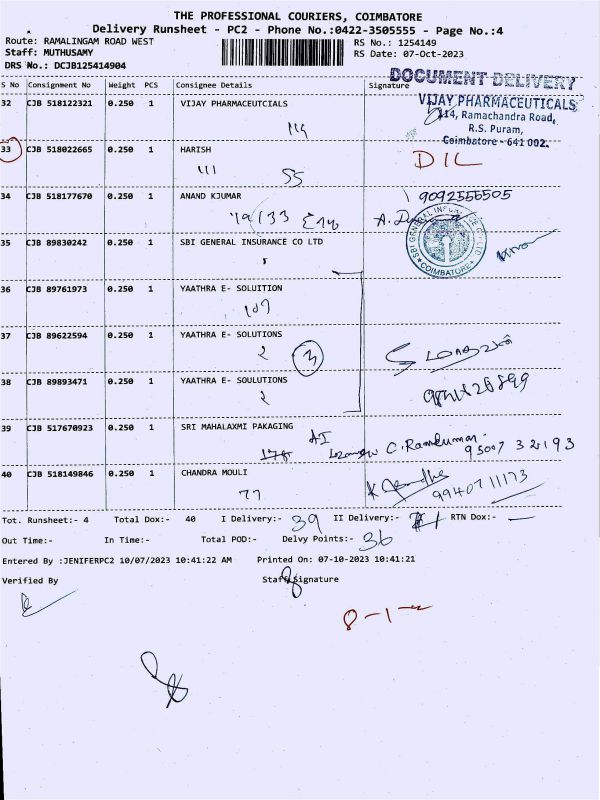 THE PROFESSIONAL COURIERS, COIMBATORE
Delivery Runsheet - PC2 - Phone No.:0422-3505555 - Page No.:4
Route: RAMALINGAM ROAD WEST RS No.: 1254149
Staff: MUTHUSAMY RS Date: 07-Oct-2023
DRS No.: DCJB125414904
DOCUMENT DELIVERY
S No Consignment No Weight PCS Consignee Details Signature
32 CJB 518122321 0.250 1 VIJAY PHARMACEUTCIALS
VIJAY PHARMACEUTICALS
114, Ramachandra Road,
R.S. Puram,
Coimbatore - 641 002.
33 CJB 518022665 0.250 1 HARISH
111 SS DIL
34 CJB 518177670 0.250 1 ANAND KJUMAR 9092555505
35 CJB 89830242 0.250 1 SBI GENERAL INSURANCE CO LTD
SBI GENERAL INSURANCE CO LTD
COIMBATORE
36 CJB 89761973 0.250 1 YAATHRA E- SOLUITION
107
37 CJB 89622594 0.250 1 YAATHRA E- SOLUTIONS
2 3
38 CJB 89893471 0.250 1 YAATHRA E- SOULUTIONS
2
39 CJB 517670923 0.250 1 SRI MAHALAXMI PAKAGING
178 C. Ramkumar
95007 32193
40 CJB 518149846 0.250 1 CHANDRA MOULI
77 9940711173
Tot. Runsheet:- 4 Total Dox:- 40 I Delivery:- 39 II Delivery:- 1 RTN Dox:- —
Out Time:- In Time:- Total POD:- Delvy Points:- 36
Entered By :JENIFERPC2 10/07/2023 10:41:22 AM Printed On: 07-10-2023 10:41:21
Verified By Staff Signature